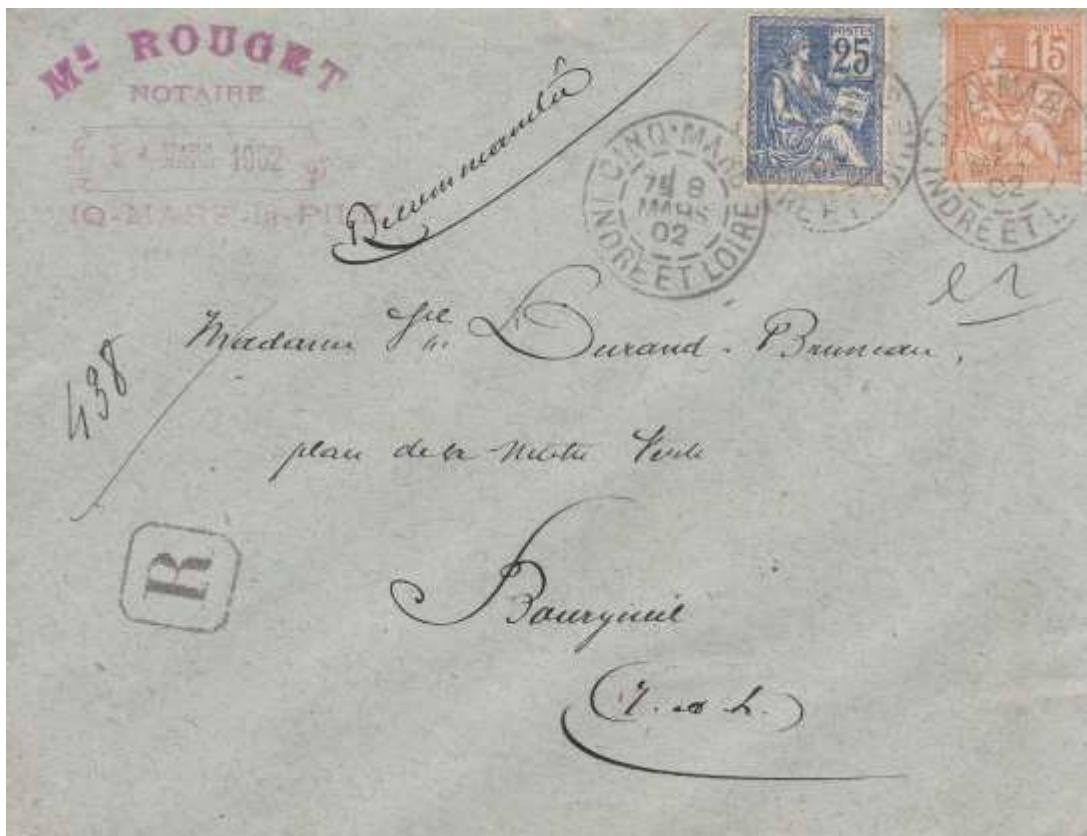 Me ROUGET
NOTAIRE
MARS 1902
Q-MARS-la-PILE
Recommandée
POSTES
25
15
CINQ-MARS
7E 8
MARS
02
INDRE ET LOIRE
02
INDRE ET L
438
Madame Durand-Bruneau,
de la Verte
R
Bourgueil
I. et L.